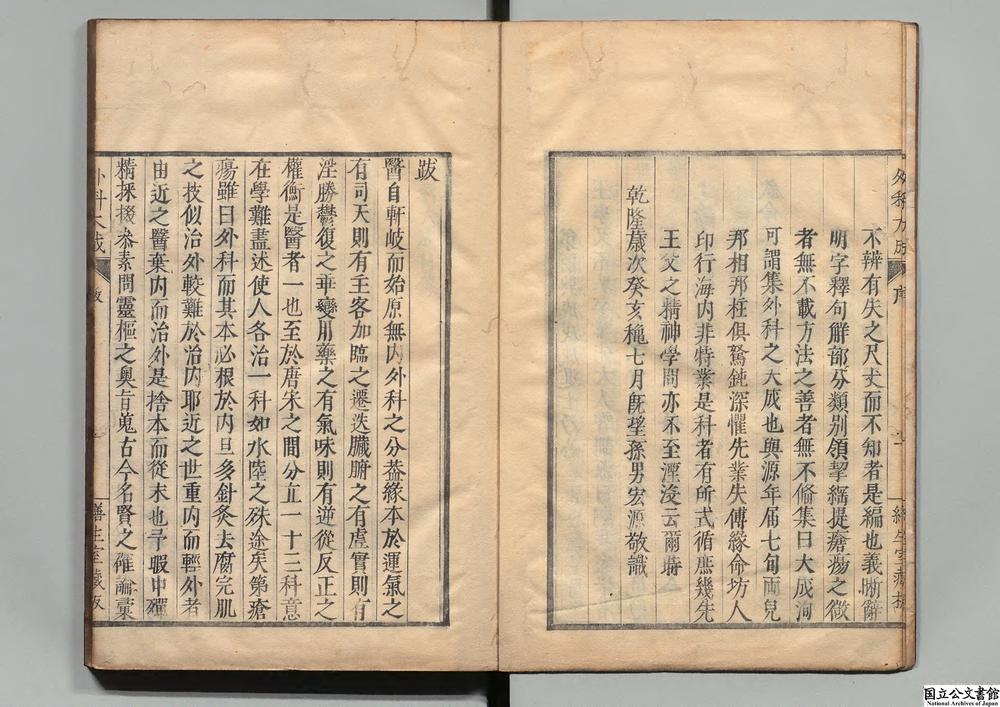 不辨有失之尺丈而不知者是編也義晰辭
明字釋句解部分類別領挈綱提瘡瘍之微
者無不載方法之善者無不備集曰大成洵
可謂集外科之大成也與源年届七旬兩兒
那相那柱俱駑鈍深懼先業失傳緣命坊人
印行海内非特業是科者有所式循庶幾先
王父之精神學問亦不至湮没云爾時
乾隆歲次癸亥穐七月既望孫男宏源敬識
跋
醫自軒岐而始原無内外科之分葢緣本於運氣之
有司天則有主客加臨之遷迭臟腑之有虚實則有
淫勝鬱復之乖變用藥之有氣味則有逆從反正之
權衡是醫者一也至於唐宋之間分立一十三科意
在學難盡述使人各治一科如水陸之殊途矣第瘡
瘍雖曰外科而其本必根於内且多針灸去腐完肌
之技似治外較難於治内耶近之世重内而輕外者
由近之醫棄内而治外是捨本而從末也予暇中殫
精採掇叅素問靈樞之奥旨蒐古今名賢之確論彙
外科大成
跋
一
善生室藏板